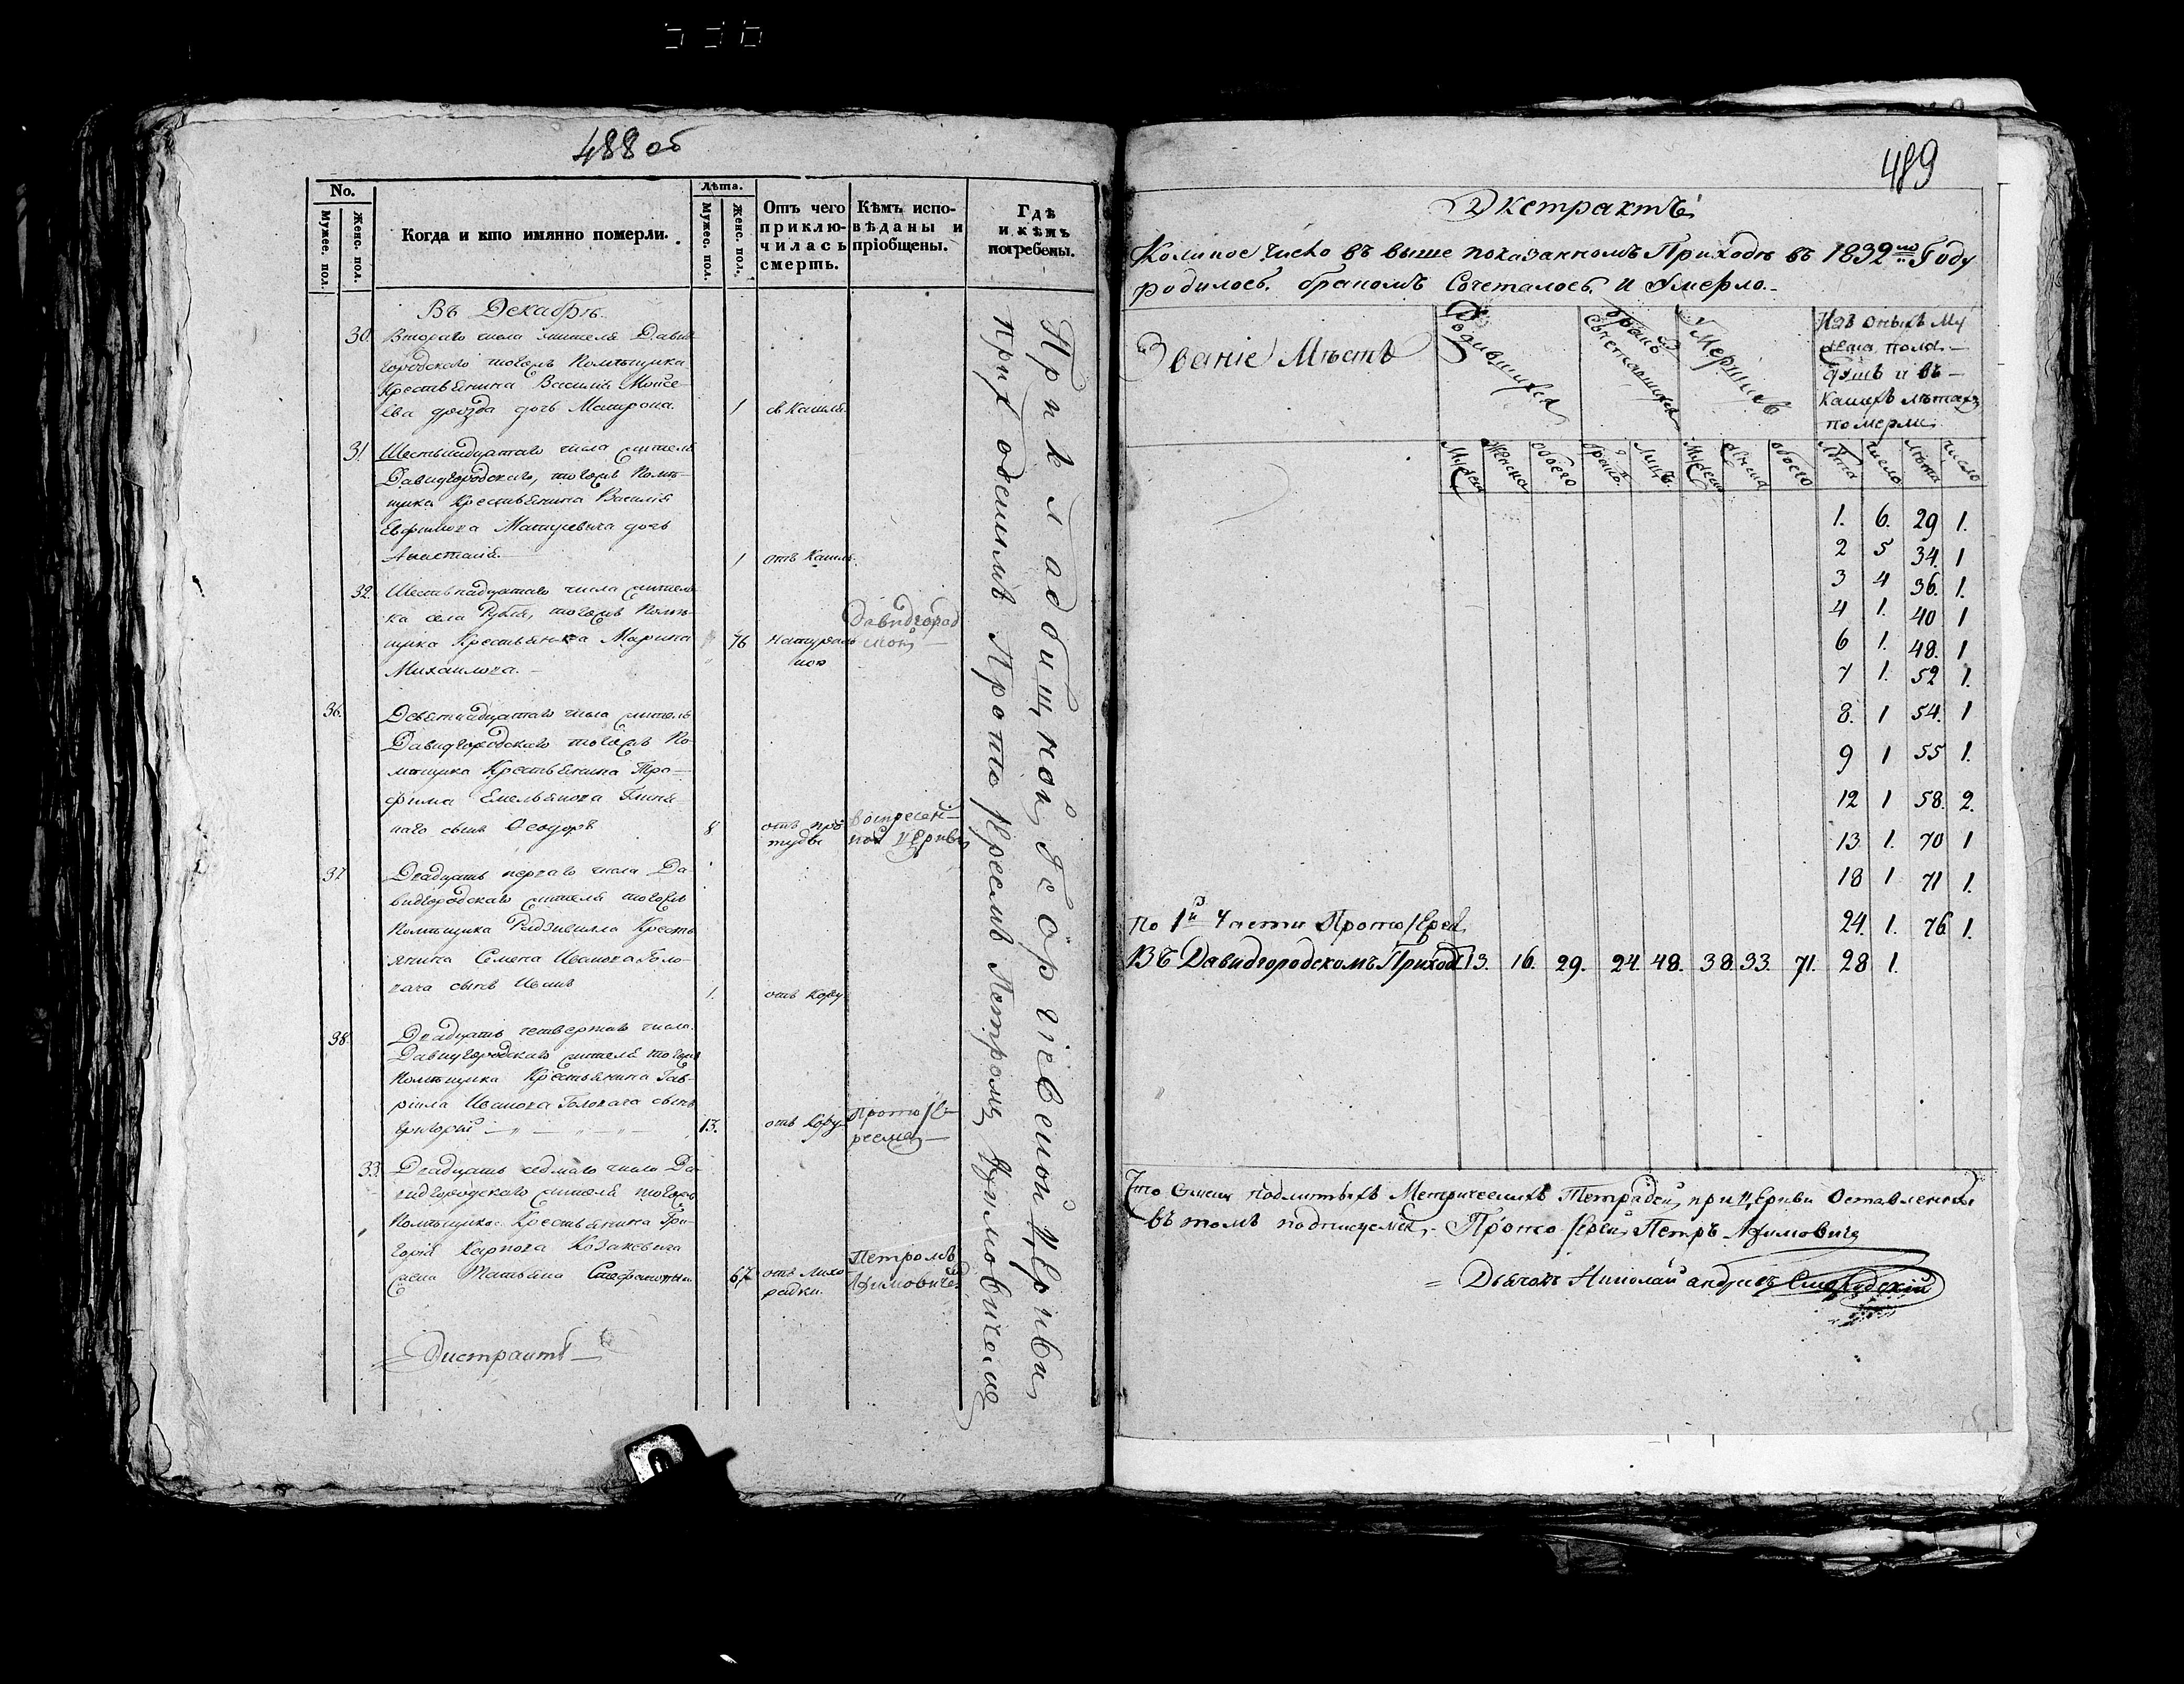 488 об
No.
Мужес. пол.
Женс. пол.
Когда и кто имянно померли.
Лѣта.
Мужес. пол.
Женс. пол.
Отъ чего приклю-
чилась
смерть.
Кѣмъ испо-
вѣданы и
пріобщены.
Гдѣ
и кѣмъ
погребены.
Въ Декабрѣ
30. Втораго числа жителя Давид-
городскаго тогожъ Помѣщика
Крестьянина Василія Моисе-
ева дрозда дочь Матрона. 1
31. Шестьнадцатаго числа жителя
Давидгородскаго, тогожъ Помѣ-
щика Крестьянина Василія
Евфимова Мацкевича дочь
Анастасія. 1 отъ Кашля.
32. Шестьнадцатаго числа житель-
ка села Рубля, тогожъ Помѣ-
щика Крестьянка Марина 76 натураль
Михайлова. ною
Давидгород
ской
36. Девятнадцатаго числа житель
Давидгородскаго тогожъ По-
мѣщика Крестьянина Тро-
фима Емельянова
наго сынъ Ѳеодоръ 8. отъ про
студы
воскресен-
ной Церкви
37. Двадцать перваго числа Да-
видгородскаго жителя тогожъ
Помѣщика Радзивилла Кресть
янина Семена Иванова Голо-
вача сынъ Иванъ 1. отъ Кору
38. Двадцать четвертаго числа
Давидгородскаго жителя тогожъ
Помѣщика Крестьянина Гав-
ріила Иванова Головача сынъ
Григорій 13. отъ Кору
Прото Іе-
реемъ
33. Двадцать седмаго числа Да-
видгородскаго жителя тогожъ
Помѣщика Крестьянина Гри-
горія Карпова Козакевича
жена Татьяна Стефановна 67 отъ лихо
радки.
Петромъ
Якимовичемъ
Экстрактъ
При Кладбищной Георгіевской Церкви
приходскимъ Прото Іереемъ Петромъ Якимовичемъ
489
Экстрактъ
Коликое число въ выше показанномъ Приходѣ въ 1832мъ Году
родилось. бракомъ Сочеталось. и Умерло.
Званіе Мѣстъ
Родившихся
бракомъ
Сочетавшихся
Умершихъ
Изъ оныхъ Му
жеска пола
душъ и въ
какихъ лѣтахъ
померли
Мужеск
Женска
обоего
браковъ
Лицъ.
Мужеск
Женска
обоего
Лѣта
Число
Лѣта
Число
1. 6. 29 1.
2 5 34. 1
3 4 36. 1.
4 1. 40 1
6 1. 48. 1
7 1. 52 1.
8. 1 54. 1
9 1 55 1.
12 1 58. 2.
13. 1. 70 1
18 1 71 1.
По 1й Части Прото Іерей 24. 1. 76 1.
Въ Давидгородскомъ Приход 13. 16. 29. 24. 48. 38. 33. 71. 28 1.
Что Списки подлинныхъ Метрическихъ Тетрадей, при Церкви Оставленны
въ томъ подписуемся. Прото Іерей Петръ Якимовичъ
Дьячокъ Николай Андреевъ